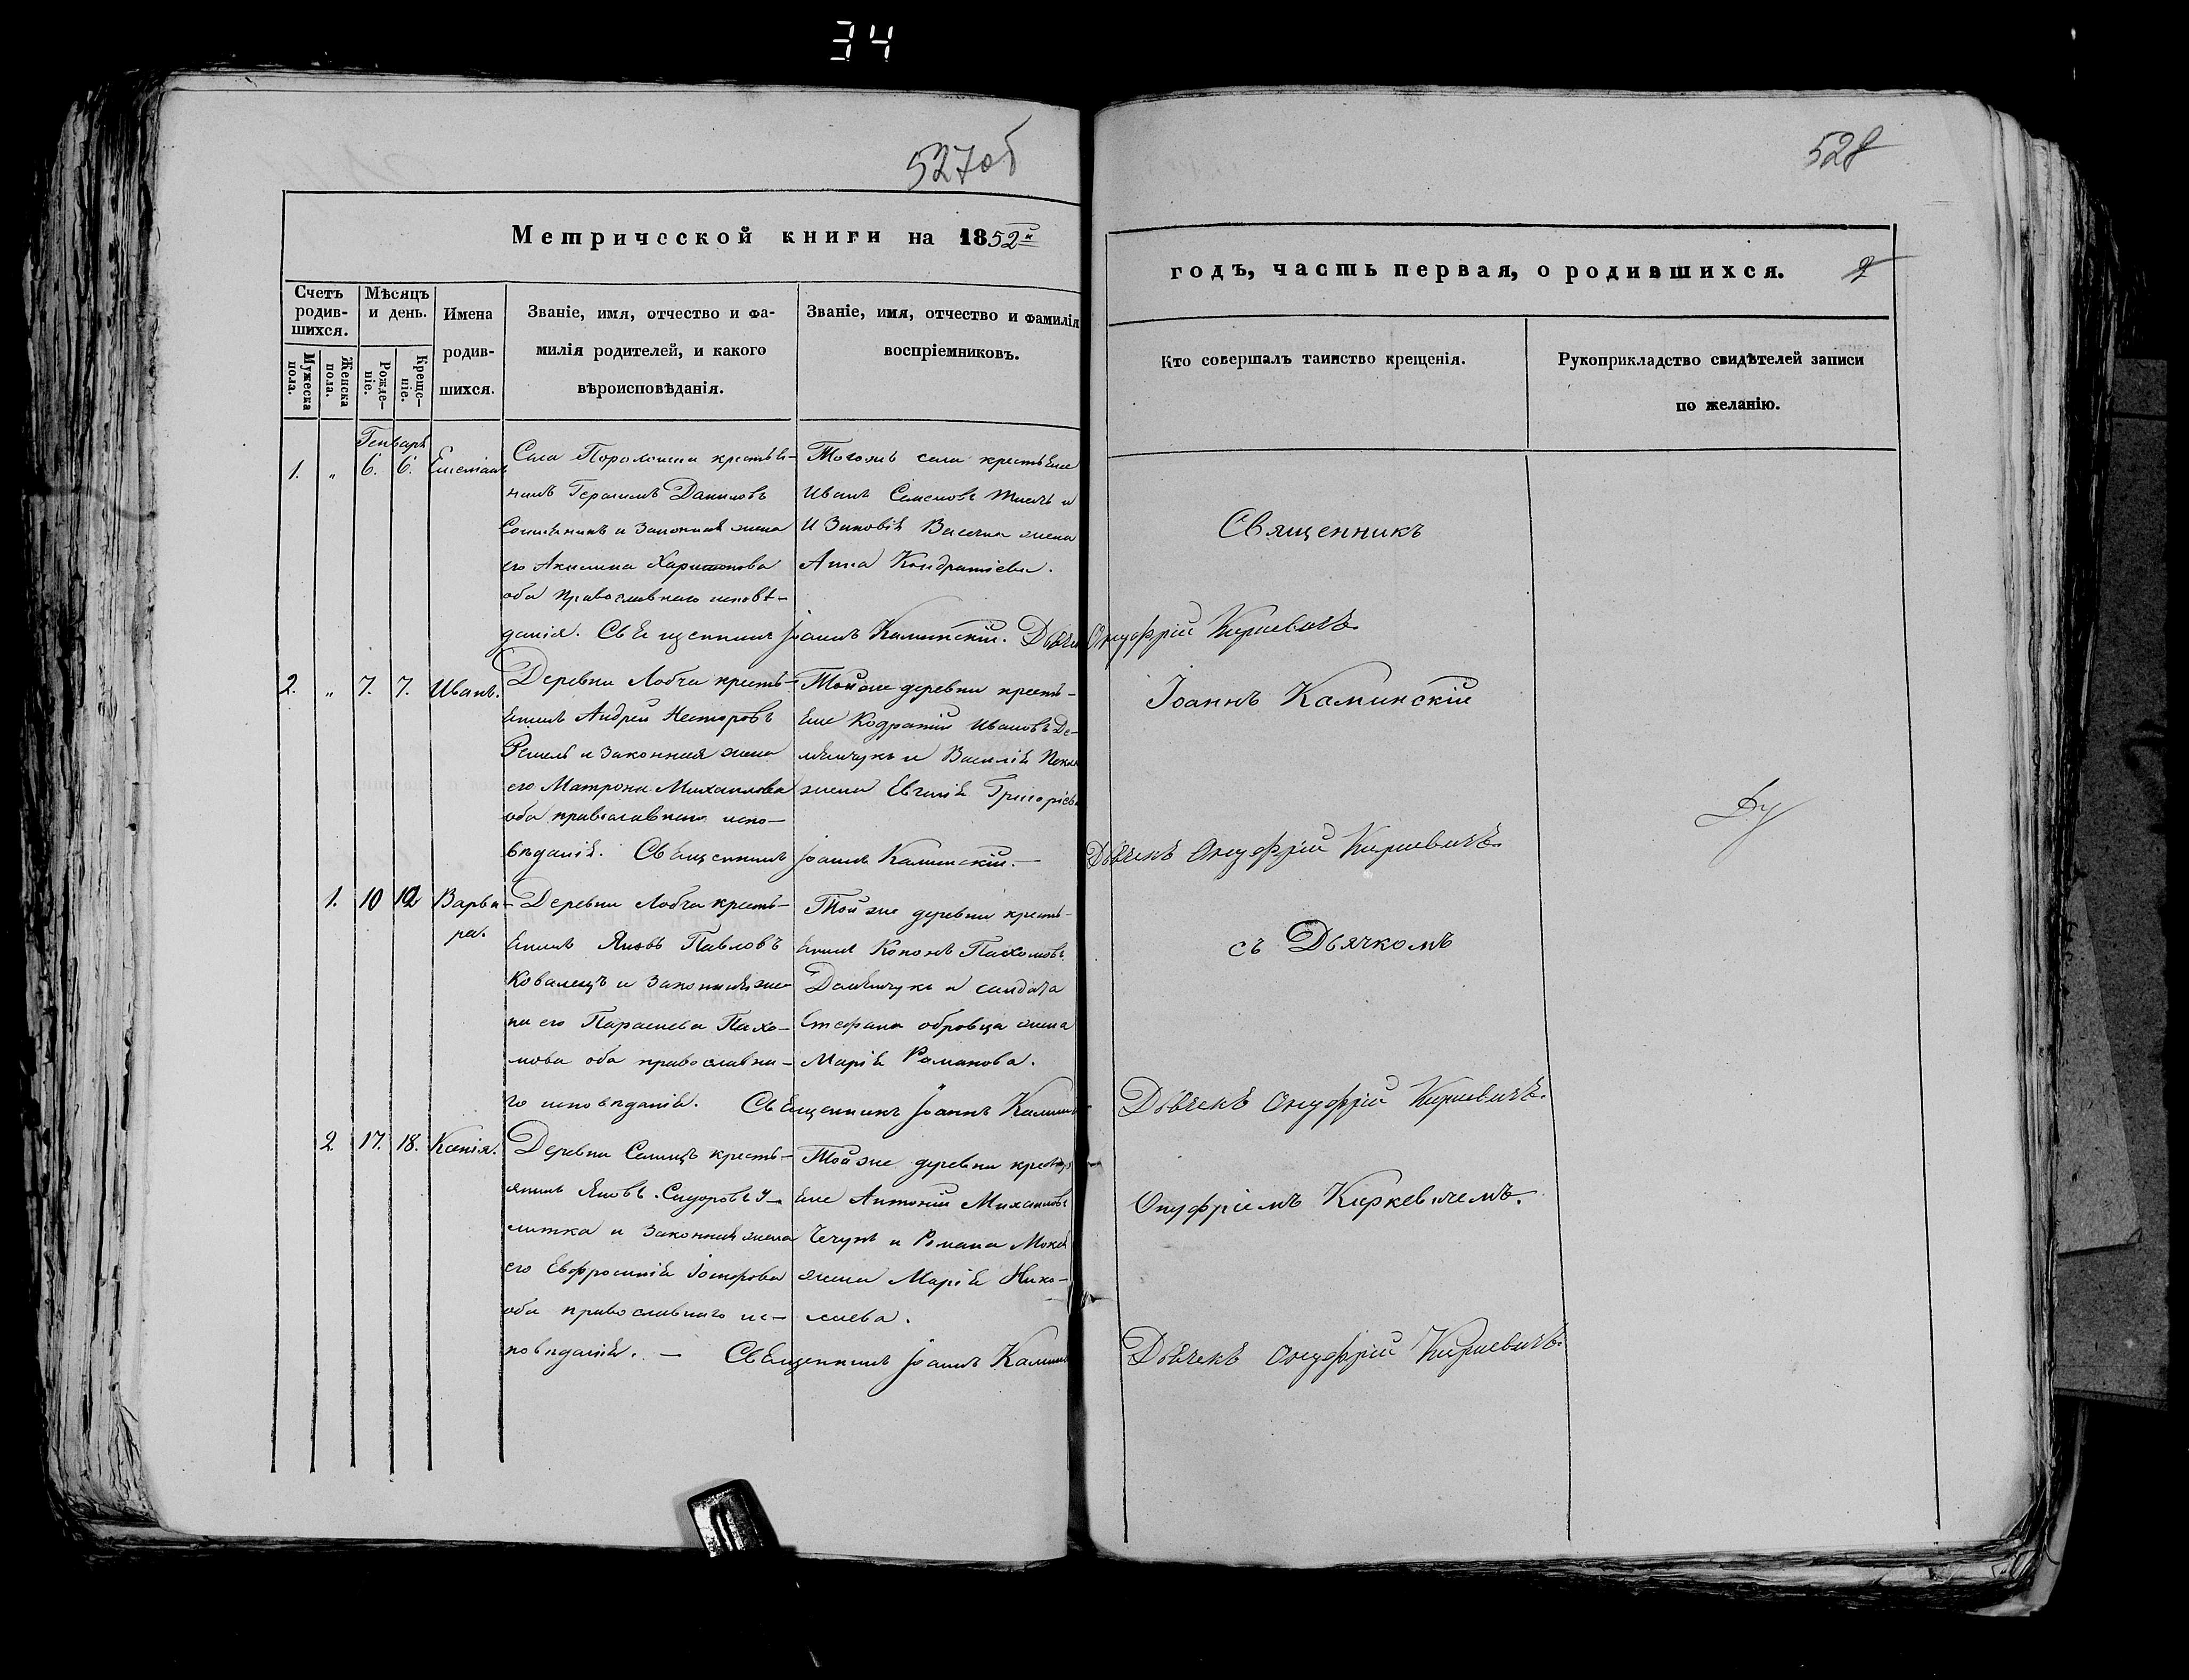 34
527об
528
Метрической книги на 1852й
годъ, часть первая, о родившихся.
2
Счетъ родив-шихся.
Мужеска пола.
Женска пола.
Мѣсяцъ и день.
Рожде-ніе.
Креще-ніе.
Имена
родив-
шихся.
Званіе, имя, отчество и фа-
милія родителей, и какого
вѣроисповѣданія.
Званіе, имя, отчество и фамилія
воспріемниковъ.
Кто совершалъ таинство крещенія.
Рукоприкладство свидѣтелей записи
по желанію.
Генварь
1. " 6. 6.
Села крестья-
нинъ Герасимъ Даниловъ
и законная жена
его Акилина Харитонова
оба православнаго исповѣ-
данія. Священникъ Іоаннъ Каминскій.
Тогожъ села крестьяне
Иванъ Семеновъ и
Зиновія жена
Анна Кондратіева.
Священникъ
Онуфрій Киркевичъ.
2. " 7. 7. Иванъ.
Деревни Лобчи кресть-
янинъ Андрей Несторовъ
и законная жена
его Матрона Михаилова
оба православнаго испо-
вѣданія. Священникъ Іоаннъ Каминскій.—
Тойже деревни кресть-
яне Кодратій Ивановъ Де-
и Василія
жена Евгенія Григоріева
Іоаннъ Каминскій
Ду
Дьячекъ Онуфрій Киркевичъ.
1. 10 12 Варва-
ра.
Деревни Лобчи кресть-
янинъ Яковъ Павловъ
Ковалецъ и законная же-
на его Параскева Пахо-
мова оба православна-
го исповѣданія. Священникъ Іоаннъ
Тойже деревни кресть-
янинъ Кононъ Пахомовъ
и солдата
Стефана обровца жена
Марія Романова.
съ Дьячкомъ
Дьячекъ Онуфрій Киркевичъ.
2. 17. 18. Ксенія.
Деревни кресть-
янинъ Яковъ Сидоровъ У-
литка и законная жена
его Евфросинія
оба православнаго ис-
повѣданія. — Священникъ Іоаннъ
Тойже деревни
яне Антоній Михаиловъ
и Романа
жена Марія Нико-
лаева.
Онуфріемъ Киркевичемъ.
Дьячекъ Онуфрій Киркевичъ.